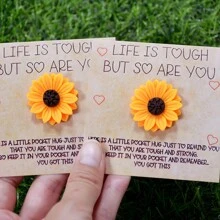 LIFE IS TOUGH
BUT SO ARE YOU
IS IS A LITTLE POCKET HUG JUST TO
THAT YOU ARE TOUGH AND STRONG.
SO KEEP IT IN YOUR POCKET AND REMEMBER,
YOU GOT THIS
LIFE IS TOUGH
BUT SO ARE YOU
THIS IS A LITTLE POCKET HUG JUST TO REMIND YOU
THAT YOU ARE TOUGH AND STRONG.
SO KEEP IT IN YOUR POCKET AND REMEMBER,
YOU GOT THIS